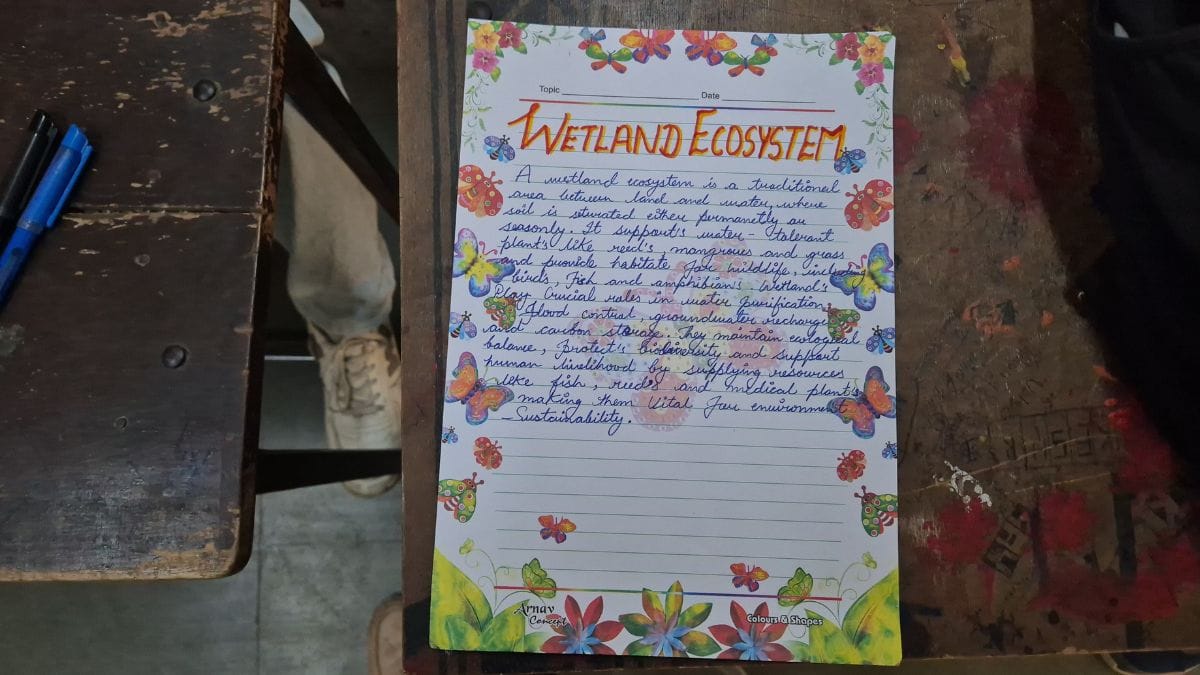 Topic Date
WETLAND ECOSYSTEM
A wetland ecosystem is a traditional
area between land and water, where
soil is sturated either permanetly or
seasonly. It support's water - tolerant
plant's like reed's, mangroves and grass
and provide habitate for wildlife, including
bird's, Fish and amphibian's Wetland's
Play Crucial roles in water purification,
flood control, groundwater recharge
and carbon storage. They maintain ecological
balance, protect's biodiversity and support
human livelihood by supplying resources
like fish, reed's and medical plant's
making them Vital For environment
-Sustainability.
Arnav
Concept
Colours & Shapes